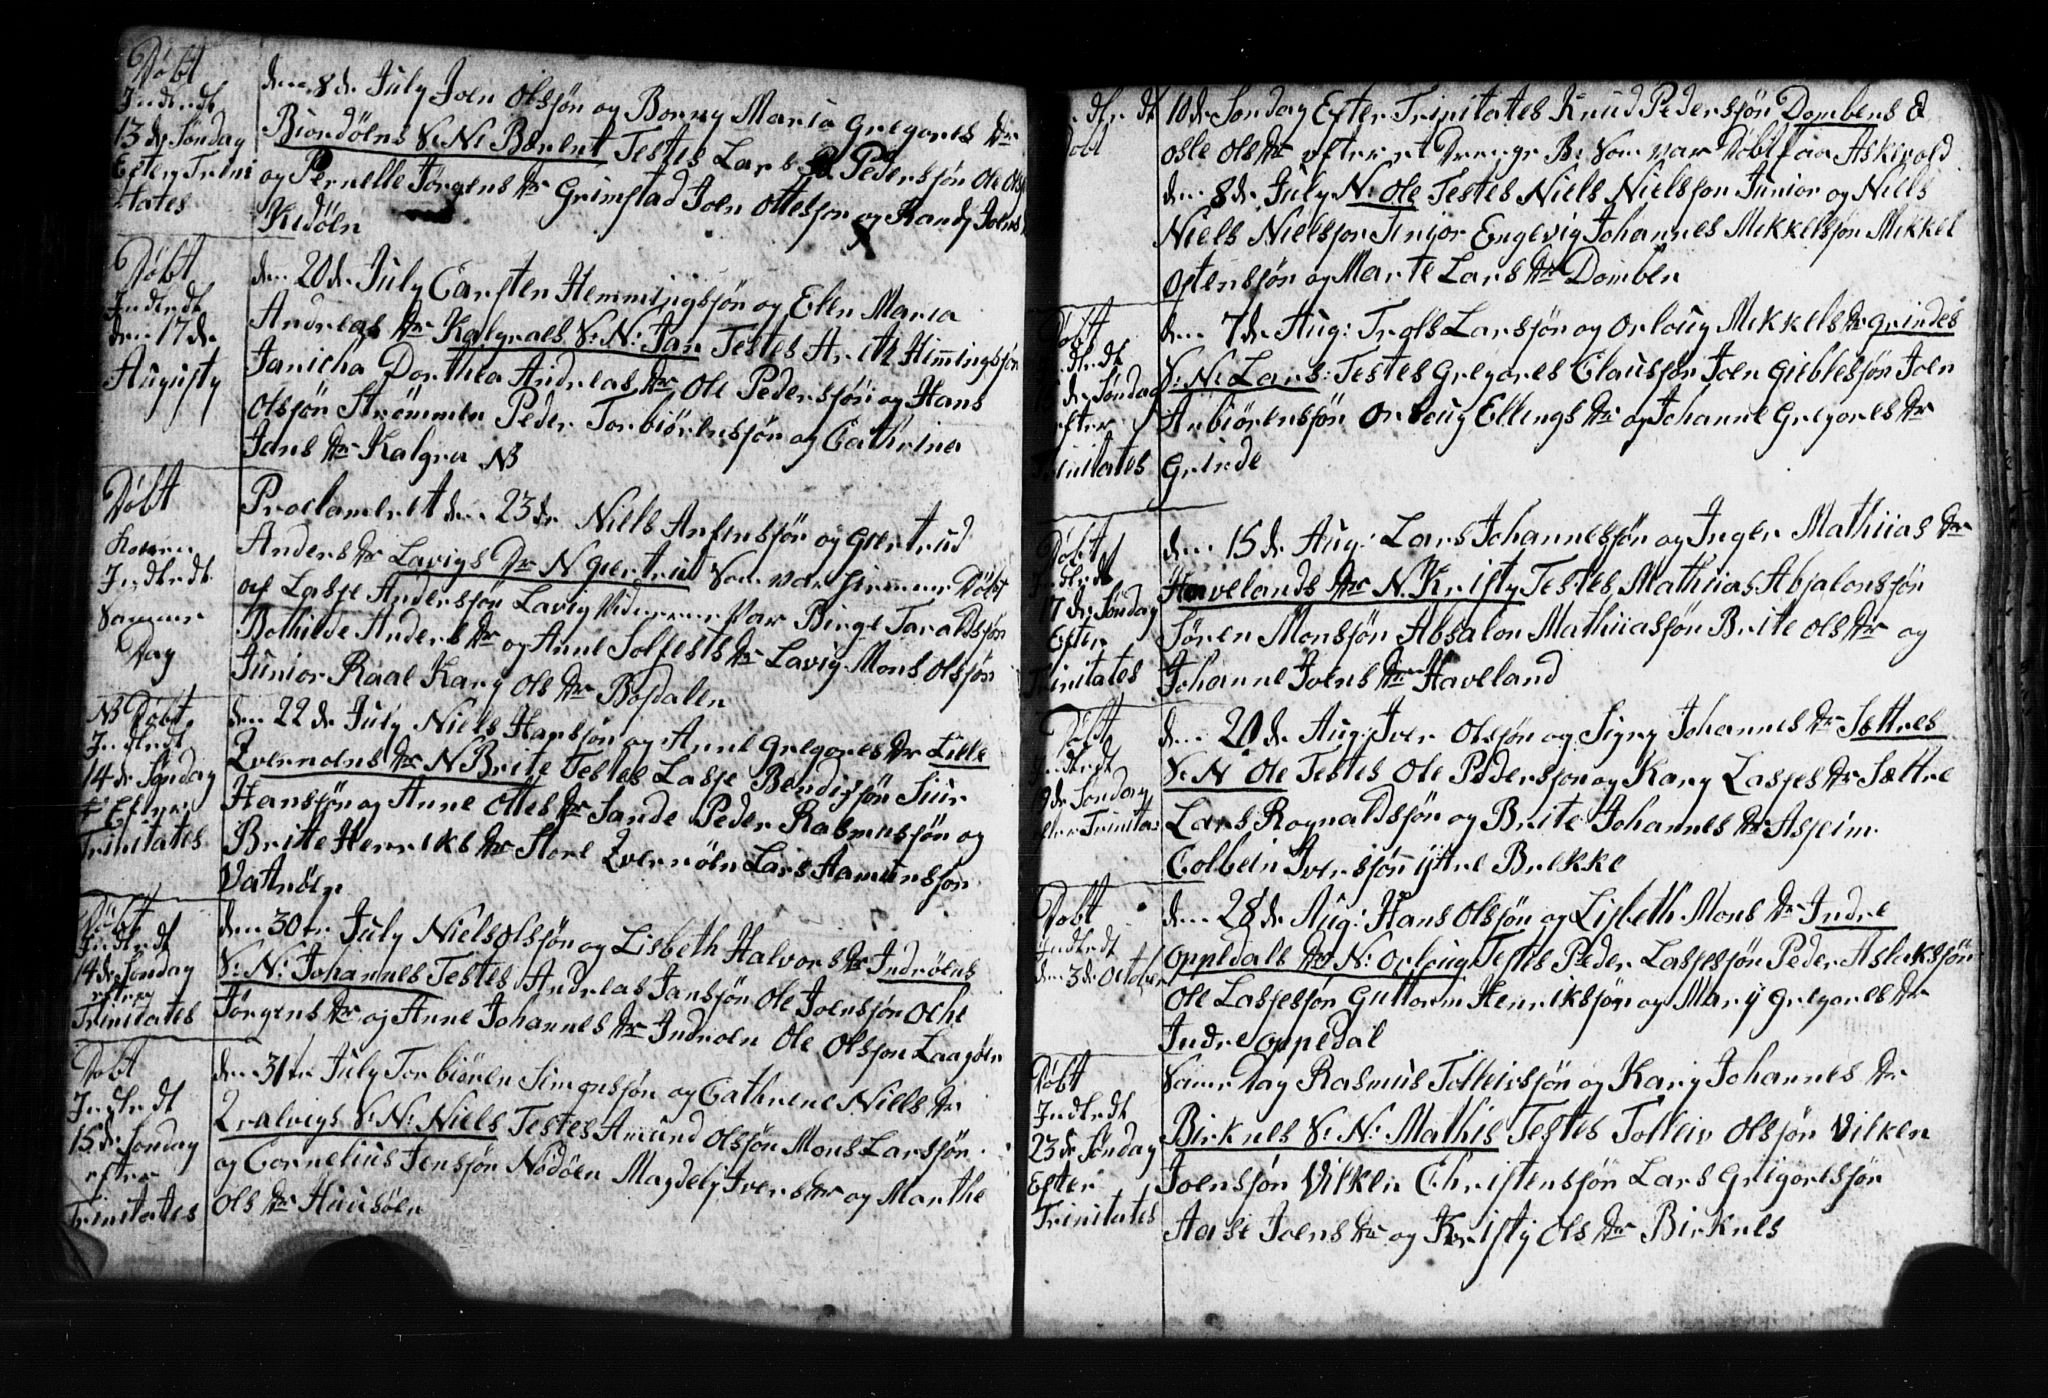 Døbt
Indledt
13de Søndag
Efter Trini
tates
den 8de July Joen Olsøn og Borny Maria Gregores dtr
Biordöens S: N: Bærent Testes Lars Pedersøn Ole Ols
og Pernelle Jørgens dtr Grimstad Joen Ottesøn og Randj Joens
Kidöln
Døbt
Indledt
den 17de
Augusty
den 20de July Carsten Hemmingsøn og Elen Maria
Andreas dtr Kalgraes S: N: Jan Testes Hemingsøn
Janicha Dorthea Andreas dtr Ole Pedersøn og Hans
Olsøn Strømmen Peder Torbiörensøn og Cathrina
Jans dtr Kalgra NB
Døbt
Indledt
Samme
Dag
Proclameret den 23de Niels Anfensøn og Giertrud
Anders dtr Lavigs Dr N Giertrud Som var Døbt
af Lasse Andersøn Lavig Vidner var Birge Taraldsøn
Bothilde Anders dtr og Anne Solfests dtr Lavig Mons Olsøn
Junior Raae Kary Ols dtr Bosdalen
NB Døbt
Indledt
14de Søndag
Efter
Trinitates
den 22de July Niels Hansøn og Anne Gregores dtr Lille
Qvernöens dtr N Brite Testes Lasse Bendixsøn Siur
Hansøn og Anne Ottes dtr Sande Peder Rasmusøn og
Britte Henriks dtr Store Qvernöen Lars Hamensøn
Vatnöen
Døbt
Indledt
14de Søndag
efter
Trinitates
den 30te July Niels Olsøn og Lisbeth Halvors dtr Indröens
S: N: Johannes Testes Andreas Jansøn Ole Joensøn
Jørgens dtr og Anne Johannes dtr Indroen Ole Olsøn Laagöen
Døbt
Indledt
15de Søndag
efter
Trinitates
den 31te July Torbiören Simensøn og Cathrine Niels dtr
Qvalvigs S: N: Niels Testes Amund Olsøn Mons Larsøn
og Cornelius Jensøn Nödöen Magdeli Ivers dtr og Marthe
Ols dtr Huusöen
Døbt
10de Søndag Efter Trinitates Knud Pedersøn Dombens &
Osle Ols dtr efter et Drenge B: Som var Døbt paa Askevold
den 8de July N: Ole Testes Niels Nielsøn Junior og Niels
Niels Nielsøn Senior Engevig Johannes Mekkelsøn Mikkel
Ostensøn og Marte Lars dtr Domben
Døbt
Søndag
efter
Trinitates
den 7de Aug: Trols Larsøn og Orloug Mekkels dtr Grindes
S: N: Lars: Testes Gregores Clausøn Joen Gieblesøn Joen
Anbiörensøn Orloug Ellings dtr og Johanne Gregores dtr
Grinde
Døbt
Indledt
17de Søndag
Efter
Trinitates
den 15de Aug: Lars Johannesøn og Inger Mathiias dtr
Havelands dtr N. Kristy Testes Mathiias Absalonsøn
Søren Monsøn Absalon Mathiiasøn Brite Ols dtr og
Johanne Joens dtr Haveland
Døbt
Indledt
19de Søndag
efter Trinitas
den 20de Aug: Iver Olsøn og Signy Johannes dtr Sættres
S: N Ole Testes Ole Pedersøn og Kary Lasses dtr Sættre
Lars Rognaldsøn og Brite Johannes dtr Aspeim
Colbein Iversøn ijtre Brekke
Døbt
Indledt
den 3de October
den 28de Aug: Hans Olsøn og Lisbeth Mons dtr Indre
Oppedals dtr N: Orloug Testes Peder Lassesøn Peder Aslaksøn
Ole Lassesøn Guttorm Henriksøn og Marij Gregores dtr
Indre Oppedal
Døbt
Indledt
23de Søndag
Efter
Trinitates
Same Dag Rasmus Tolleivsøn og Kary Johannes dtr
Birknes S: N: Mathis Testes Tolleiv Olsøn Vilken
Joensøn Vilken Christensøn Lars Grigoresøn
Aase Joens dtr og Kristj Ols dtr Birknes